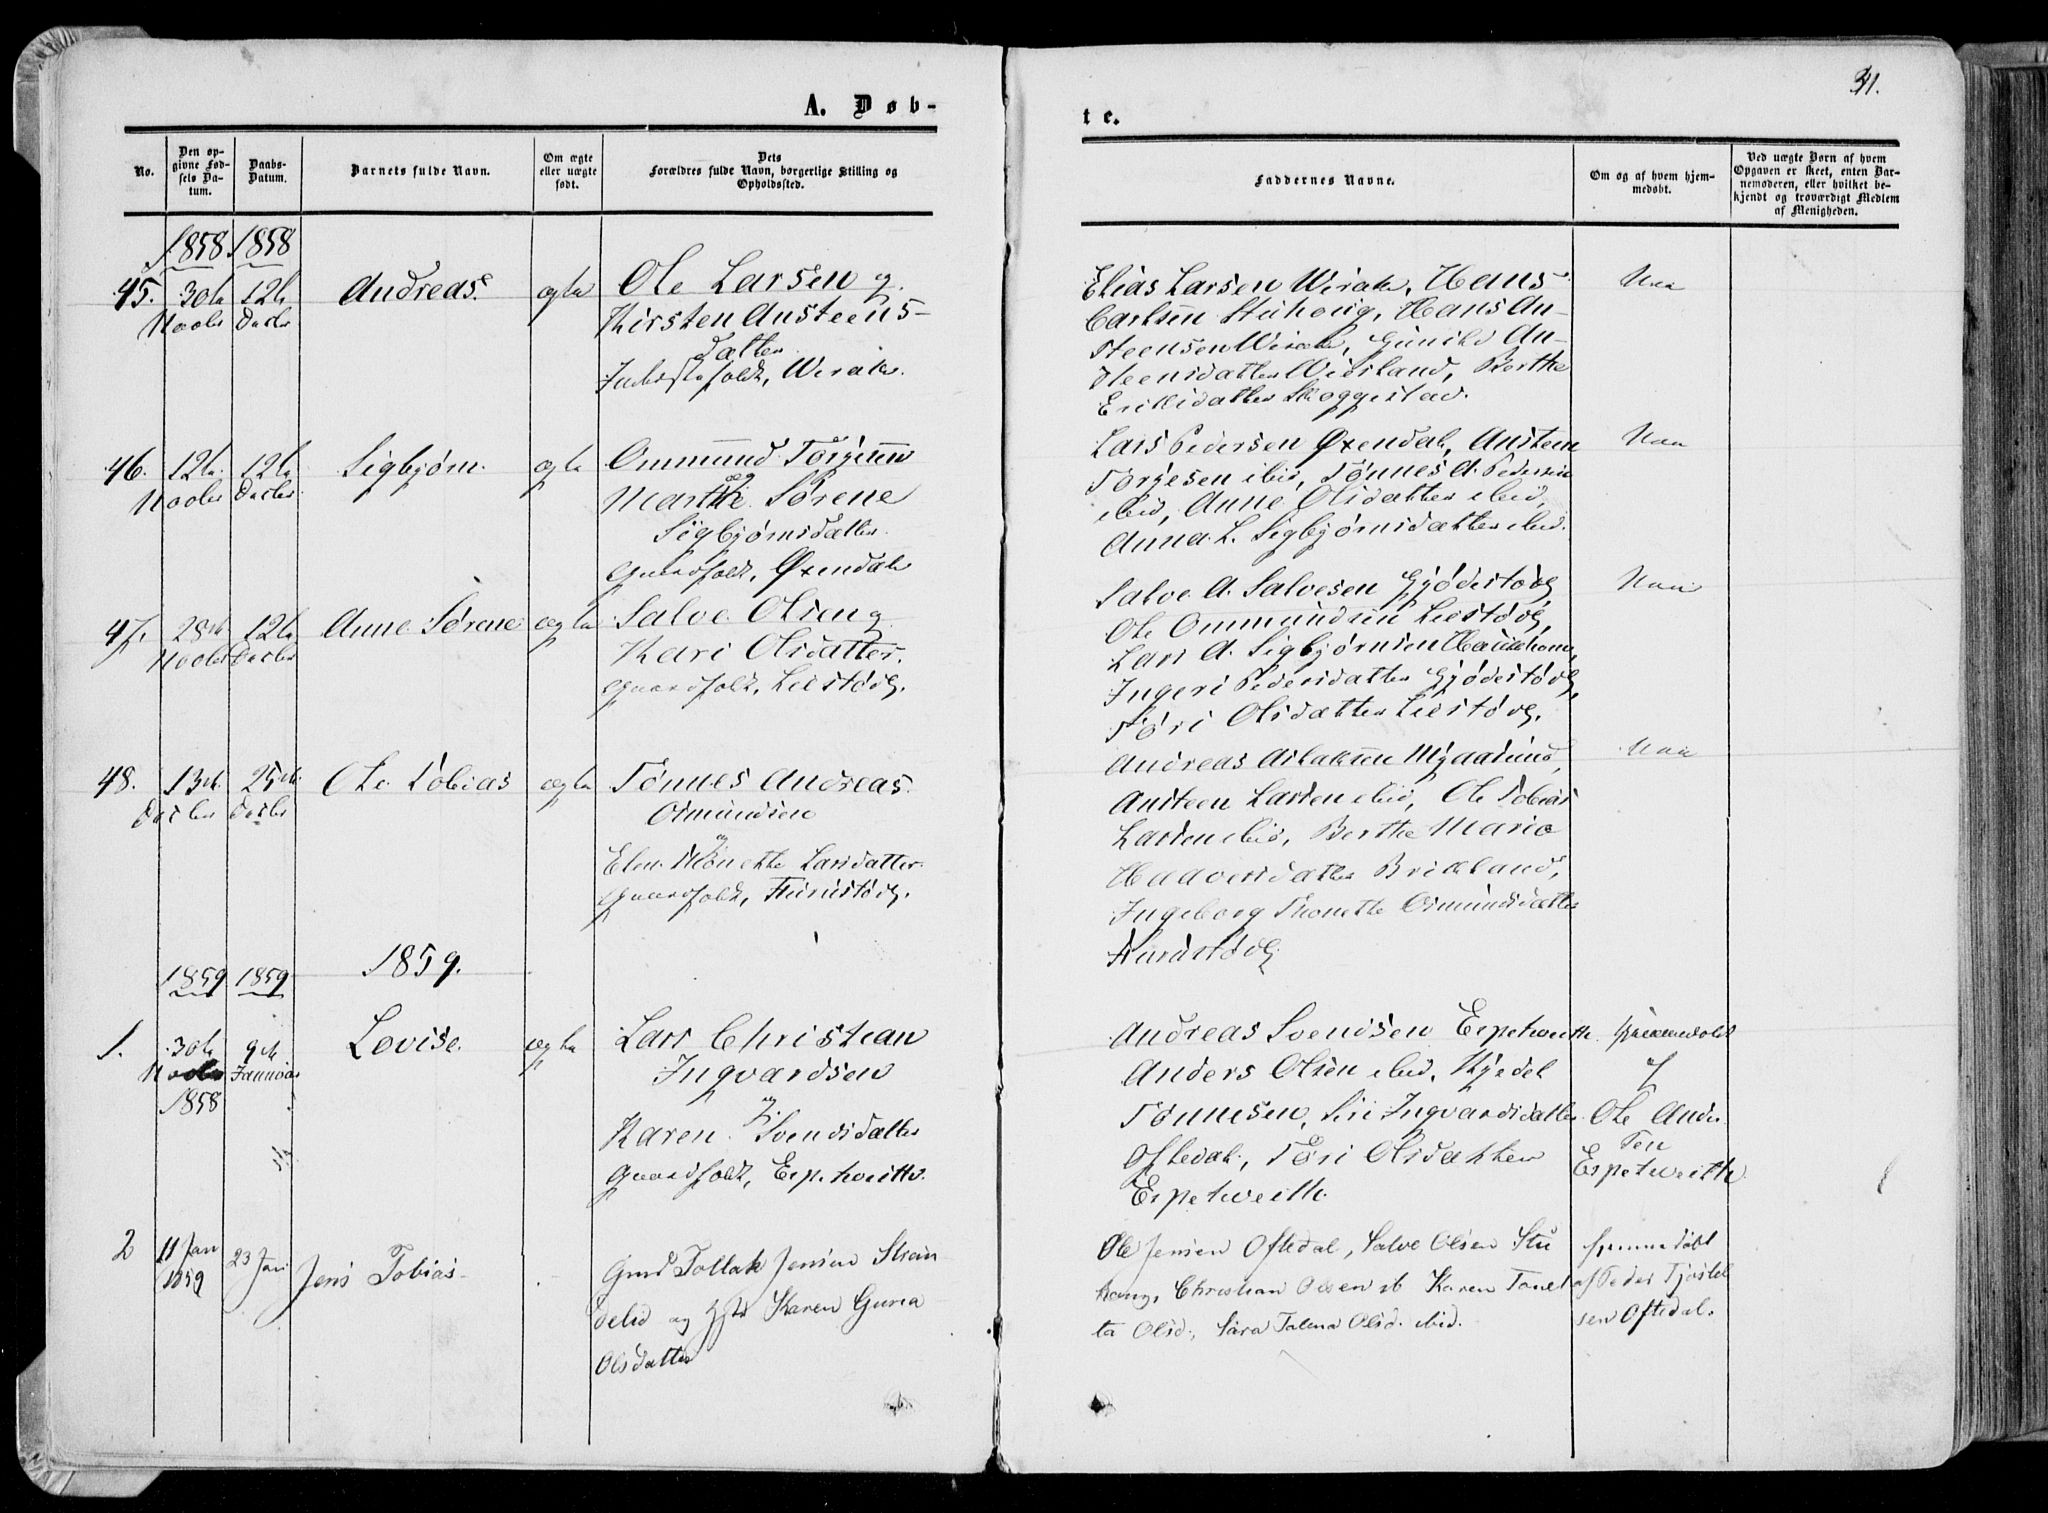 31.
A. Døb-
te.
No.
Den op-
givne Fød-
sels Da-
tum.
Daabs-
Datum.
Barnets fulde Navn.
Om ægte
eller uægte
født.
Dets
Forældres fulde Navn, borgerlige Stilling og
Opholdssted.
Faddernes Navne.
Om og af hvem hjem-
medøbt.
Ved uægte Born af hvem
Opgaven er skeet, enten Bar-
nemoderen, eller hvilket be-
kjendt og troværdigt Medlem
af Menigheden.
1858 1858
45. 30te 12te Andreas. ægte Ole Larsen og
Novbr Decbr Kirsten Austeens-
datter
Wirak.
Elias Larsen Wirak, Hans
Carlsen Hans Au-
steensen Wirak, Gunild Au-
steensdatter Widsland, Berthe
Eriksdatter Skoggestad.
46. 12te 12te Sigbjørn. ægte Ommund Torgersen
Novbr Decbr og
Marthe Sørene
Sigbjørnsdatter
Gaardfolk, Øxendal
Lars Pedersen Øxendal, Austeen
Torgesen ibid, Tønnes A. Pedersen
ibid, Anne Olsdatter ibid,
Anna L. Sigbjørnsdatter ibid.
47. 28de 12te Anne Sørene ægte Salve Olsen og
Novbr Decbr Kari Olsdatter.
Gaardfolk, Liestøl.
Salve A. Salvesen Gjødestøl
Ole Ommundsen Liestøl,
Lars A. Sigbjørnsen
Ingeri Pedersdatter Gjødestøl,
Tøri Olsdatter Liestøl.
48. 13de 25de Ole Tobias ægte Tønnes Andreas
Decbr Decbr Osmundsen
og
Elen Larsdatter
Gaardfolk,
Andreas Aslaksen Mydlund,
Austeen Larsen ibid, Ole Tobias
Larsen ibid, Berthe Marie
Haaversdatter Birkeland,
Ingeborg Thonette Osmundsdatter
1859 1859 1859.
1. 30te 9de Lovise. ægte Lars Christian
Novbr Januar Ingvardsen
1858 og
Karen Svendsdatter
Gaardfolk, Espetweith.
Andreas Svendsen Espetweith
Anders Olsen ibid, Kjedel
Tønnesen, Siri Ingvardsdatter
Oftedal, Tøri Olsdatter
Espetweith.
Hjemmedøbt
af
Ole Ander
sen
Espetweith.
2 11 Jan 23 Jan Jens Tobias
1859
Gmd Tollak Jensen Strøm
og Hst Karen Guria
Olsdatter
Ole Jensen Oftedal, Salve Olsen Stu
houg, Christian Olsen st Karen Tonet
ta Olsd., Sara Talena Olsd. ibid.
hjemmedøbt
af Peder Tjostel
sen Oftedal.